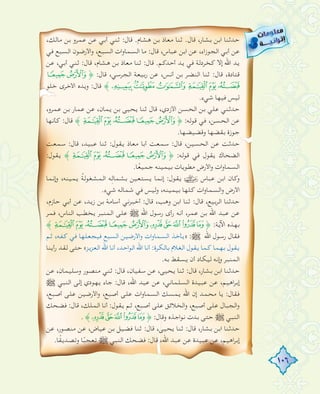 معلومات
إثرائية
حدثنا ابن بشار، قال: ثنا معاذ بن هشام، قال: ثني أبي عن عمرو بن مالك،
عن أبي الجوزاء، عن ابن عباس، قال: ما السماوات السبع، والأرضون السبع في
يد الله إلا كخردلة في يد أحدكم. قال: ثنا معاذ بن هشام، قال: ثني أبي، عن
قتادة، قال: ثنا النضر بن أنس، عن ربيعة الجرسي، قال: ﴿ وَٱلْأَرْضُ جَمِيعًا
قَبْضَتُهُ يَوْمَ ٱلْقِيَٰمَةِ وَٱلسَّمَٰوَٰتُ مَطْوِيَّٰتٌۢ بِيَمِينِهِ ﴾، قال: ويده الأخرى خلو
ليس فيها شيء.
حدثني علي بن الحسن الأزدي، قال ثنا يحيى بن يمان، عن عمار بن عمرو،
عن الحسن، في قوله: ﴿ وَٱلْأَرْضُ جَمِيعًا قَبْضَتُهُ يَوْمَ ٱلْقِيَٰمَةِ ﴾، قال: كأنها
جوزة بقضها وقضيضها.
حدثت عن الحسين، قال: سمعت أبا معاذ يقول: ثنا عبيد، قال: سمعت
الضحاك يقول في قوله: ﴿ وَٱلْأَرْضُ جَمِيعًا قَبْضَتُهُ يَوْمَ ٱلْقِيَٰمَةِ ﴾ يقول:
السماوات والأرض مطويات بيمينه جميعا.
وكان ابن عباس يقول: إنما يستعين بشماله المشغولة يمينه، وإنما
الأرض والسماوات كلها بيمينه، وليس في شماله شيء.
حدثنا الربيع، قال: ثنا ابن وهب، قال: أخبرني أسامة بن زيد، عن أبي حازم،
عن عبد الله بن عمر، أنه رأى رسول الله ﷺ على المنبر يخطب الناس، فمر
بهذه الآية: ﴿ وَمَا قَدَرُوا۟ ٱللَّهَ حَقَّ قَدْرِهِ وَٱلْأَرْضُ جَمِيعًا قَبْضَتُهُ يَوْمَ ٱلْقِيَٰمَةِ ﴾
فقال رسول الله ﷺ: «يأخذ السماوات والأرضين السبع فيجعلها في كفه، ثم
يقول بهما كما يقول الغلام بالكرة: أنا الله الواحد، أنا الله العزيز» حتى لقد رأينا
المنبر وإنه ليكاد أن يسقط به.
حدثنا ابن بشار، قال: ثنا يحيى، عن سفيان، قال: ثني منصور وسليمان، عن
إبراهيم، عن عبيدة السلماني، عن عبد الله، قال: جاء يهودي إلى النبي ﷺ
فقال: يا محمد إن الله يمسك السماوات على أصبع، والأرضين على أصبع،
والجبال على أصبع، والخلائق على أصبع، ثم يقول: أنا الملك، قال: فضحك
النبي ﷺ حتى بدت نواجذه وقال: ﴿ وَمَا قَدَرُوا۟ ٱللَّهَ حَقَّ قَدْرِهِ ﴾.
حدثنا ابن بشار، قال: ثنا يحيى، قال: ثنا فضيل بن عياض، عن منصور، عن
إبراهيم، عن عبيدة عن عبد الله، قال: فضحك النبي ﷺ تعجبًا وتصديقًا.
١٠٦